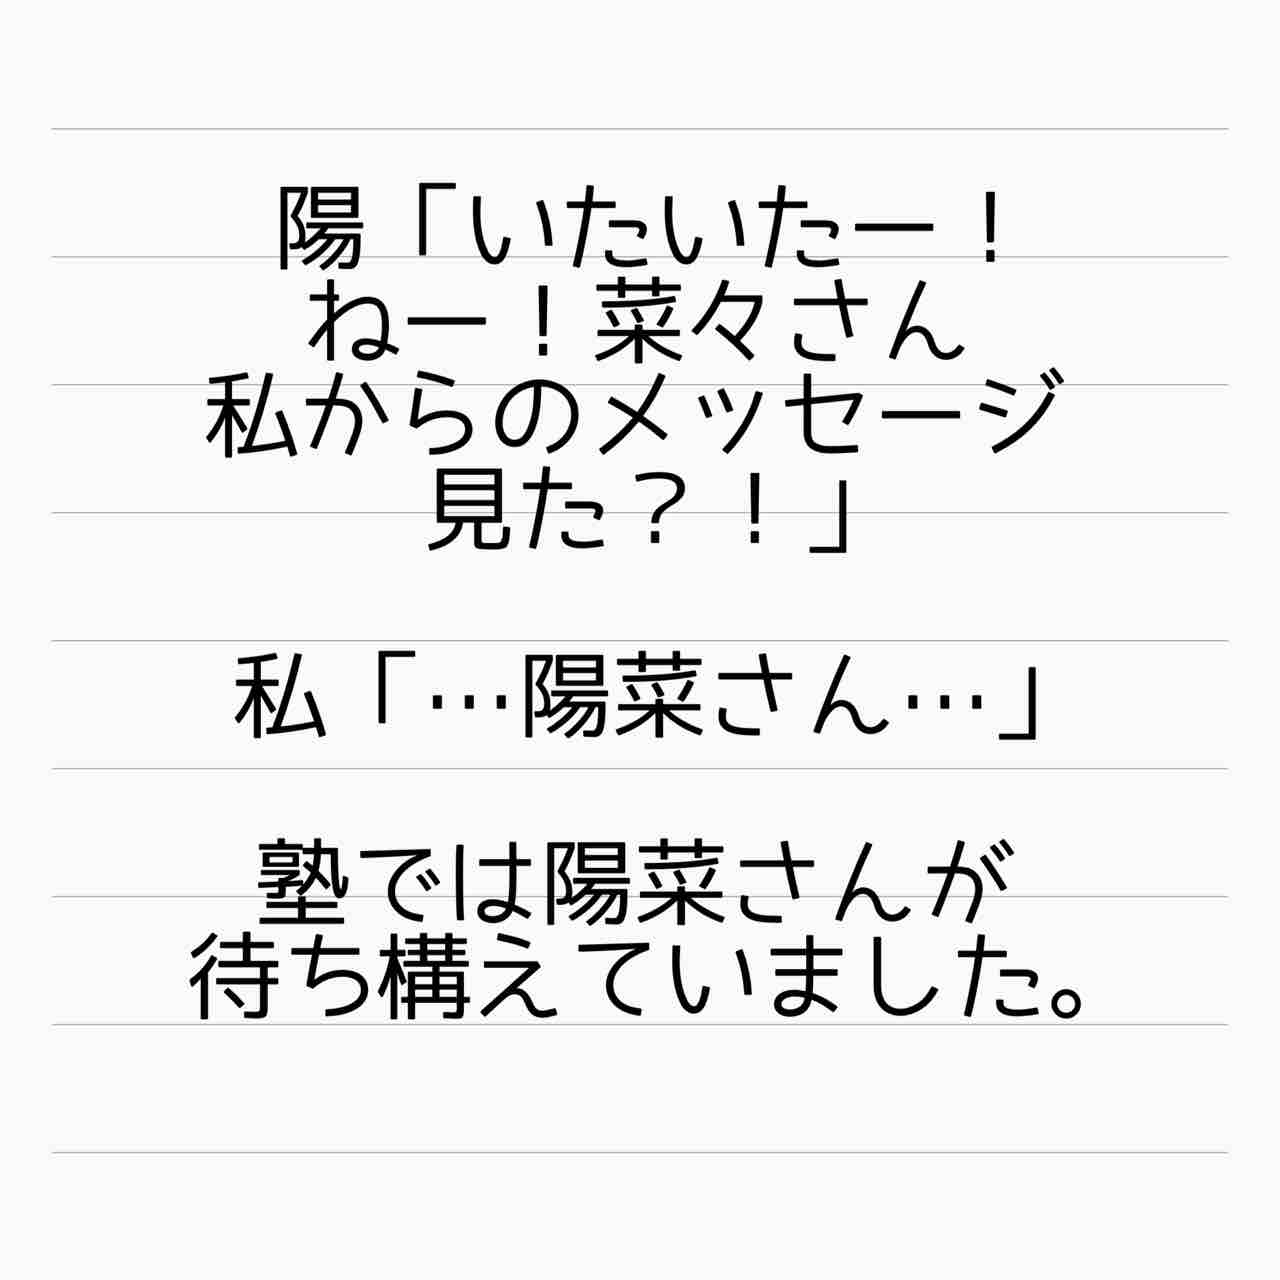 陽「いたいたー！
ねー！菜々さん
私からのメッセージ
見た？！」
私「…陽菜さん…」
塾では陽菜さんが
待ち構えていました。